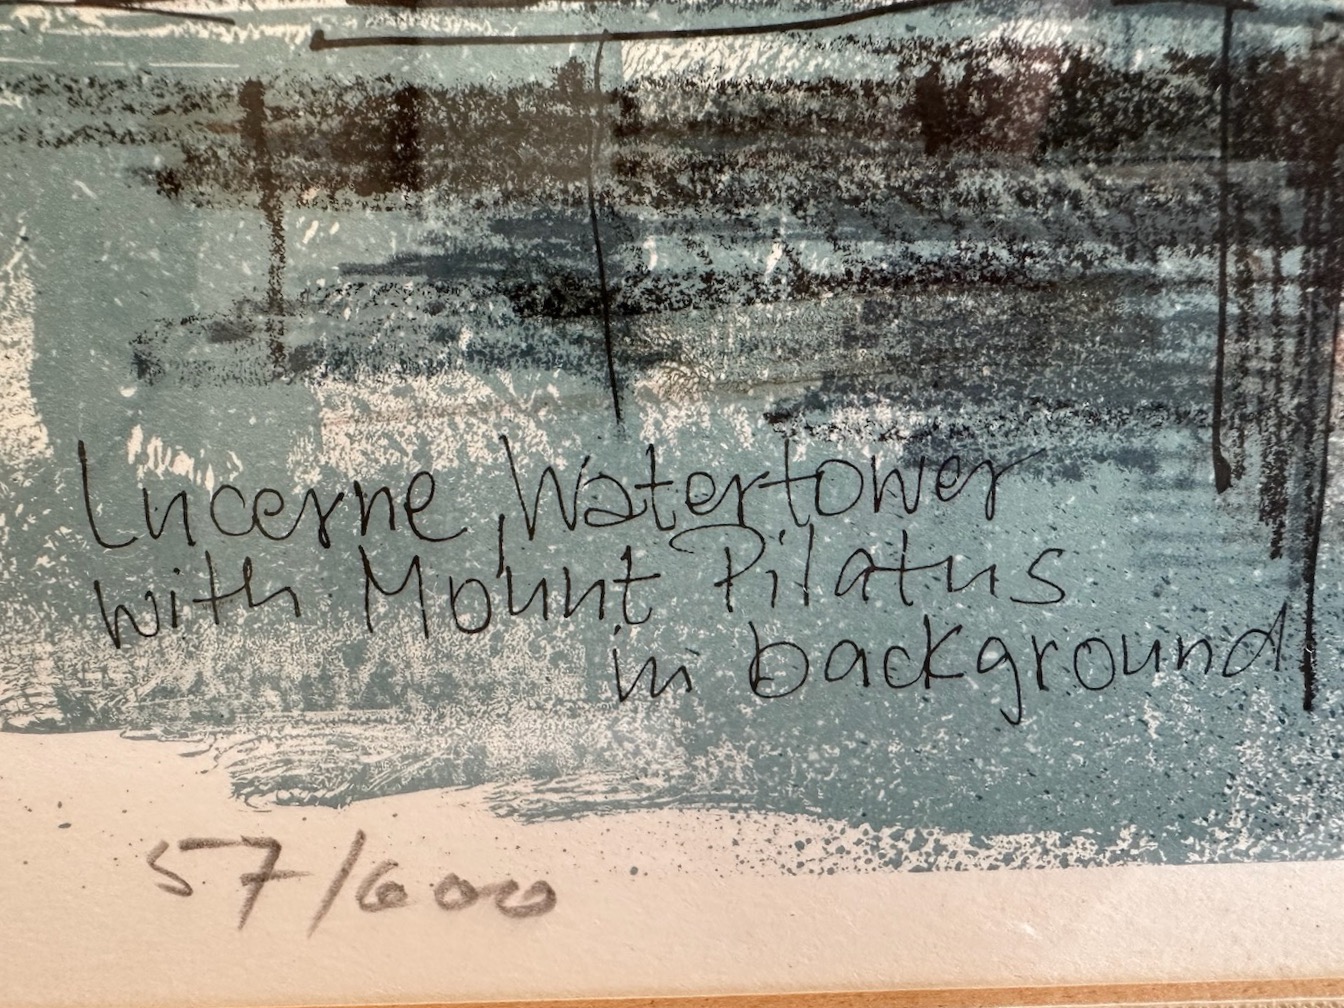 Lucerne, Watertower
with Mount Pilatus
in background
57/600